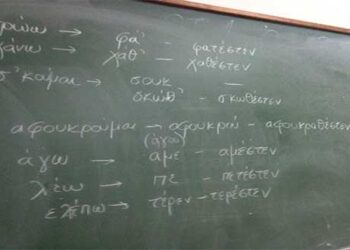 τρώω → φά' - φατέστεν
χάνω → χαθ' - χαθέστεν
σ'κώμαι → σουκ —
σκώθ' - σκωθέστεν
αφουκρούμαι → αφουκρού - αφουκραθέστεν
(άγω)
άγω → άμε - αμέστεν
λέω → πέ - πετέστεν
ελέπω → τέρεν - τερέστεν